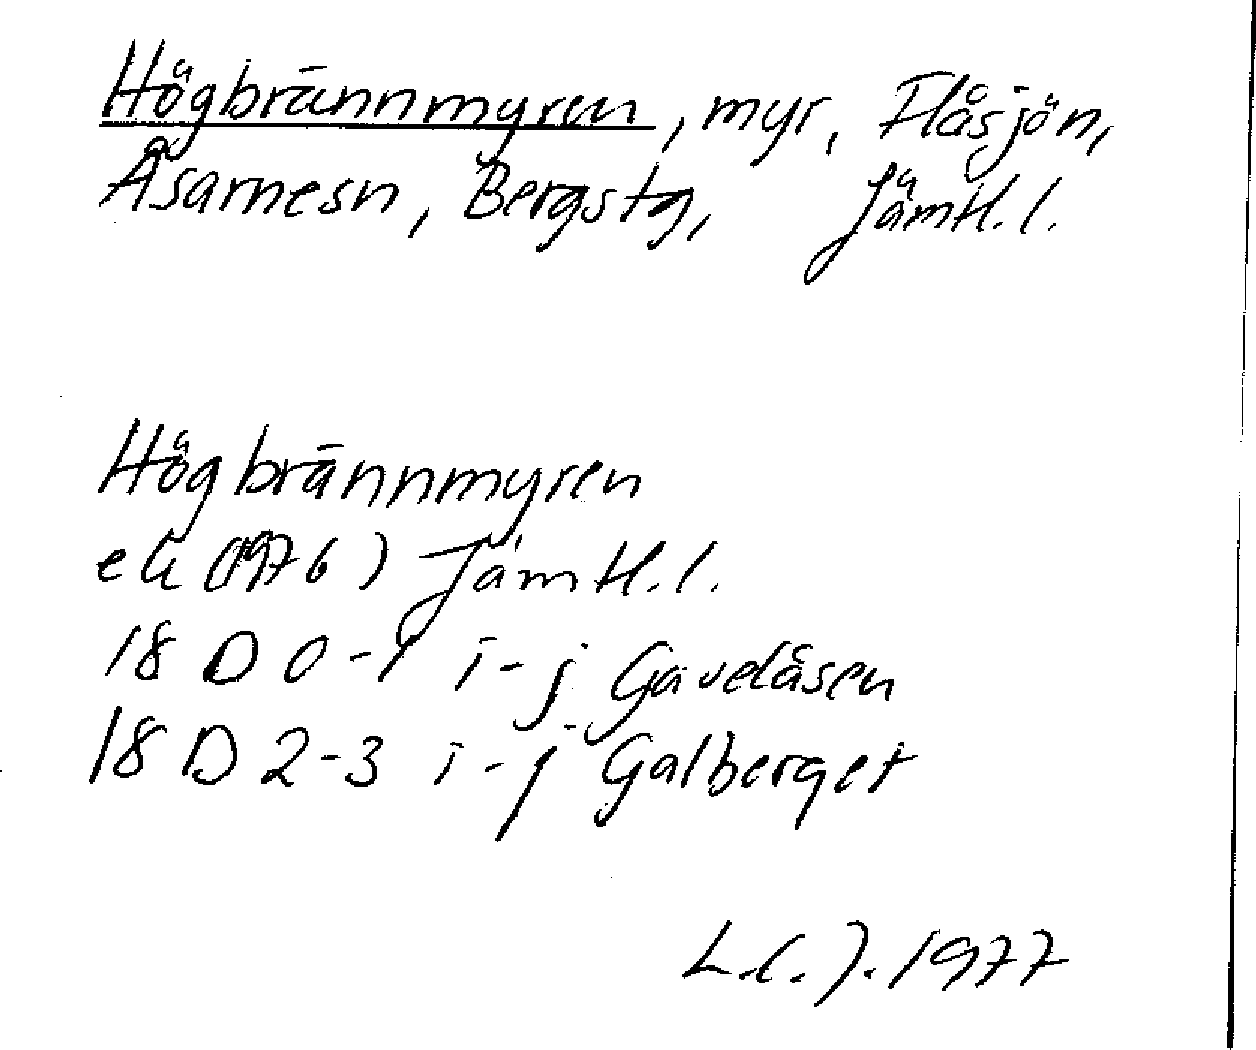 Högbrännmyren, myr, Flåsjön,
Åsarnesn, Bergstg, Jämtl.l.
Högbrännmyren
ek (1976) Jämtl.l.
18 D 0-1 i-j Gåvelåsen
18 D 2-3 i-j Galberget
L.C.J. 1977